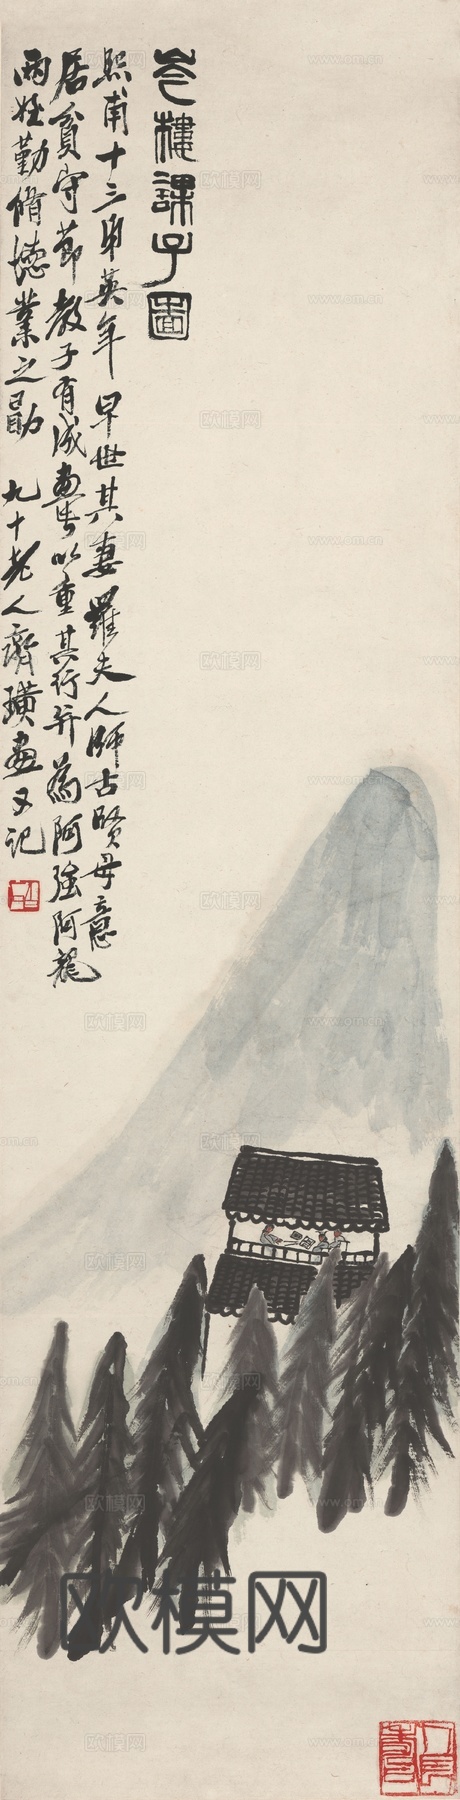 岑樓課子圖
熙甫十三弟英年早世其妻羅夫人師古賢母意
居貧守節教子有成畫此以重其行并為阿強阿龍
兩姪勤脩德業之勖 九十老人齊璜畫又記
人長壽
欧模网
www.om.cn